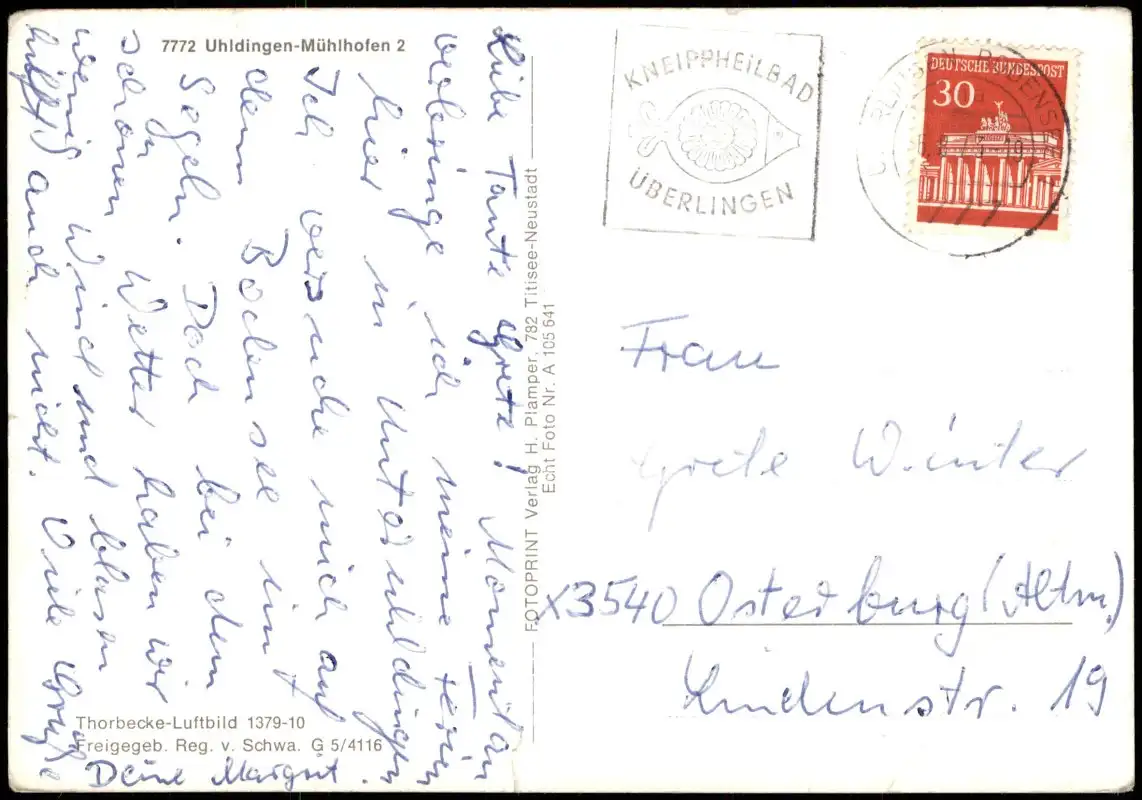 7772 Uhldingen-Mühlhofen 2
Liebe Tante Grete! Momentan
verbringe ich meine Ferien
hier in Unteruhldingen
Ich versuche mich auf
dem Bodensee im
Segeln. Doch bei dem
schönen Wetter haben wir
wenig Wind und blasen
hilft auch nicht. Viele Grüße
Deine Margrit.
Thorbecke-Luftbild 1379-10
Freigegeb. Reg. v. Schwa. G 5/4116
FOTOPRINT Verlag H. Plamper, 782 Titisee-Neustadt
Echt Foto Nr. A 105 641
KNEIPPHEILBAD
ÜBERLINGEN
DEUTSCHE BUNDESPOST
30
777
Frau
Grete Winter
X3540 Osterburg (Altm.)
Lindenstr. 19